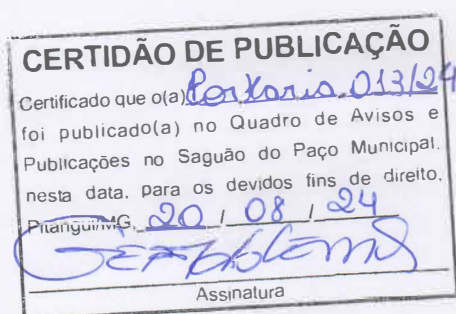 CERTIDÃO DE PUBLICAÇÃO
Certificado que o(a) Portaria 013/24
foi publicado(a) no Quadro de Avisos e
Publicações no Saguão do Paço Municipal,
nesta data, para os devidos fins de direito,
Pitangui/MG, 20 / 08 / 24
Assinatura